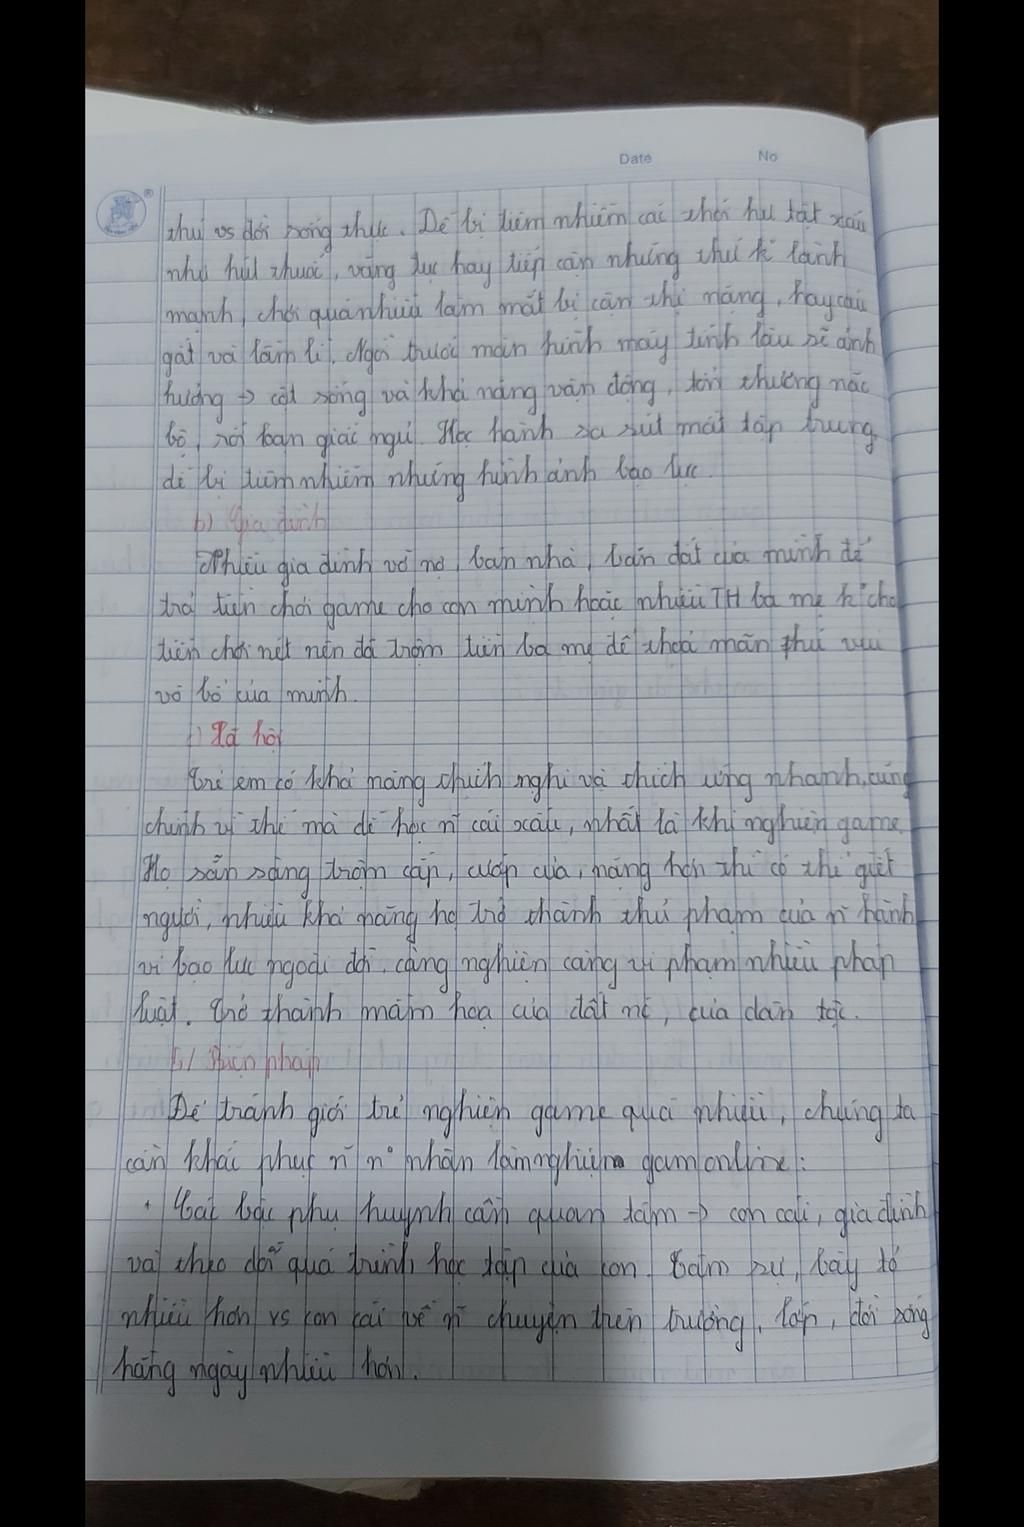 Date No
thú vs đời sống thực. Dễ bị tiêm nhiễm cái thói hư tật xấu
như hút thuốc, văng tục hay tiếp cận những thứ k lành
mạnh, chơi quá nhiều làm mắt bị cận thị nặng, hay cáu
gắt và lầm lì. Ngồi trước màn hình máy tính lâu sẽ ảnh
hưởng → cột sống và khả năng vận động, tổn thương não
bộ, rối loạn giấc ngủ. Học hành sa sút mất tập trung
dễ bị tiêm nhiễm những hình ảnh bạo lực.
b) Gia đình
Nhiều gia đình vỡ nợ, bán nhà, bán đất của mình để
trả tiền chơi game cho con mình hoặc nhiều TH ba mẹ k cho
tiền chơi nét nên đã trộm tiền ba mẹ để thoả mãn thú vui
vô bổ của mình.
) Xã hội
Trẻ em có khả năng thích nghi và thích ứng nhanh, cũng
chính vì thế mà dễ học n~ cái xấu, nhất là khi nghiện game.
Họ sẵn sàng trộm cắp, cướp của, nặng hơn thì có thể giết
người, nhiều khả năng họ trở thành thủ phạm của n~ hành
vi bạo lực ngoài đời, càng nghiện càng vi phạm nhiều pháp
luật. Trở thành mầm họa của đất nc, của dân tộc.
5/ Biện pháp
Để tránh giới trẻ nghiện game quá nhiều, chúng ta
cần khắc phục n~ nº nhân làm nghiện gam online:
• Các bậc phụ huynh cần quan tâm → con cái, gia đình
và theo dõi quá trình học tập của con. Tâm sự, bày tỏ
nhiều hơn vs con cái về n~ chuyện trên trường, lớp, đời sống
hằng ngày nhiều hơn.